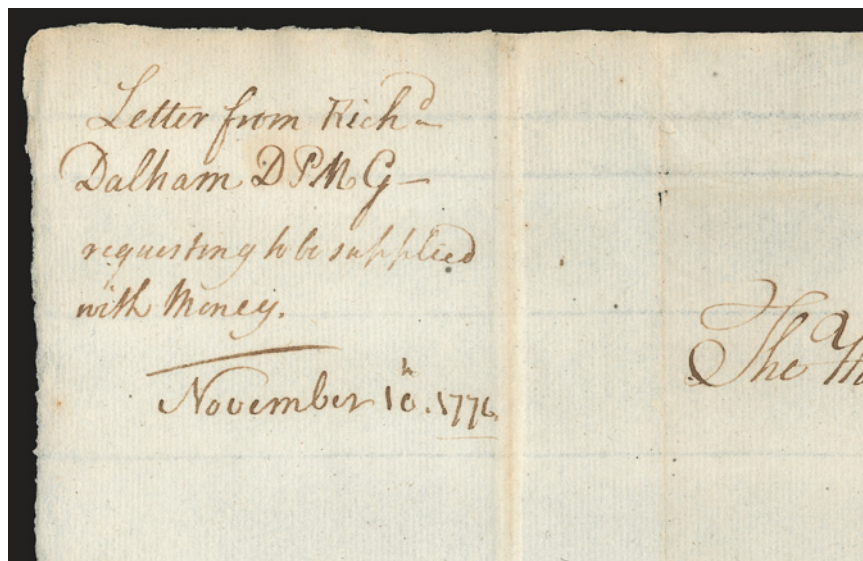 Letter from Rich^d
Dalham D P M G —
requesting to be supplied
with Money.
November 10^h. 1776.
The